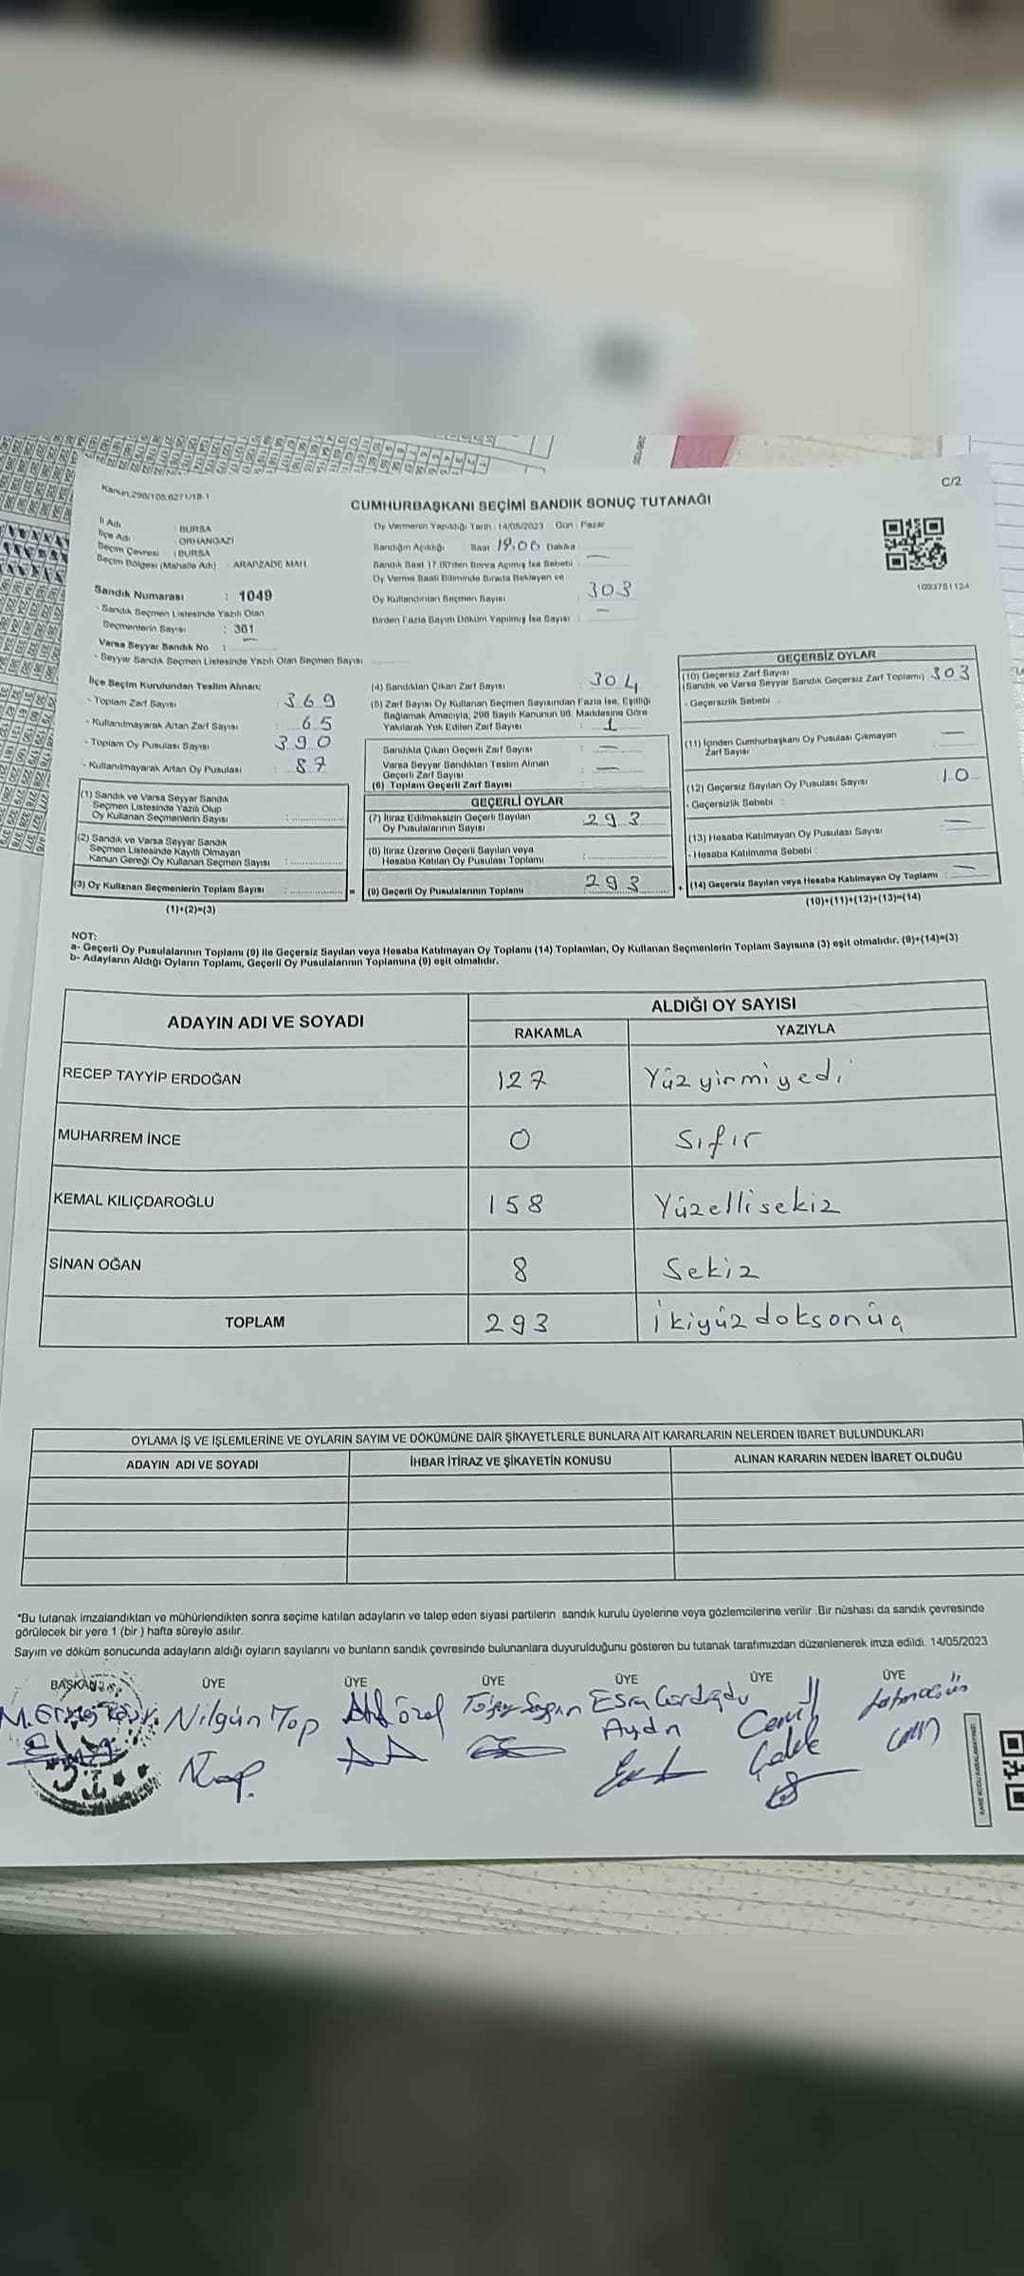 Kanun:298/105,6271/18-1
C/2
CUMHURBAŞKANI SEÇİMİ SANDIK SONUÇ TUTANAĞI
İl Adı : BURSA
İlçe Adı : ORHANGAZİ
Seçim Çevresi : BURSA
Seçim Bölgesi (Mahalle Adı) : ARAPZADE MAH
Sandık Numarası : 1049
- Sandık Seçmen Listesinde Yazılı Olan
Seçmenlerin Sayısı : 361
Varsa Seyyar Sandık No : —
- Seyyar Sandık Seçmen Listesinde Yazılı Olan Seçmen Sayısı
Oy Vermenin Yapıldığı Tarih : 14/05/2023 Gün : Pazar
Sandığın Açıldığı Saat 19.06 Dakika
Sandık Saat 17.00'den Sonra Açılmış İse Sebebi : —
Oy Verme Saati Bitiminde Sırada Bekleyen ve
Oy Kullandırılan Seçmen Sayısı : 303
Birden Fazla Sayım Döküm Yapılmış İse Sayısı : —
1093751124
İlçe Seçim Kurulundan Teslim Alınan;
- Toplam Zarf Sayısı : 369
- Kullanılmayarak Artan Zarf Sayısı : 65
- Toplam Oy Pusulası Sayısı : 390
- Kullanılmayarak Artan Oy Pusulası : 87
(1) Sandık ve Varsa Seyyar Sandık
Seçmen Listesinde Yazılı Olup
Oy Kullanan Seçmenlerin Sayısı :
(2) Sandık ve Varsa Seyyar Sandık
Seçmen Listesinde Kayıtlı Olmayan
Kanun Gereği Oy Kullanan Seçmen Sayısı :
(3) Oy Kullanan Seçmenlerin Toplam Sayısı :
(1)+(2)=(3)
(4) Sandıktan Çıkan Zarf Sayısı : 304
(5) Zarf Sayısı Oy Kullanan Seçmen Sayısından Fazla İse, Eşitliği
Sağlamak Amacıyla, 298 Sayılı Kanunun 98. Maddesine Göre
Yakılarak Yok Edilen Zarf Sayısı : 1
Sandıkta Çıkan Geçerli Zarf Sayısı : —
Varsa Seyyar Sandıktan Teslim Alınan
Geçerli Zarf Sayısı : —
(6) Toplam Geçerli Zarf Sayısı
GEÇERLİ OYLAR
(7) İtiraz Edilmeksizin Geçerli Sayılan
Oy Pusulalarının Sayısı : 293
(8) İtiraz Üzerine Geçerli Sayılan veya
Hesaba Katılan Oy Pusulası Toplamı :
= (9) Geçerli Oy Pusulalarının Toplamı : 293
GEÇERSİZ OYLAR
(10) Geçersiz Zarf Sayısı
(Sandık ve Varsa Seyyar Sandık Geçersiz Zarf Toplamı) 303
- Geçersizlik Sebebi :
(11) İçinden Cumhurbaşkanı Oy Pusulası Çıkmayan
Zarf Sayısı : —
(12) Geçersiz Sayılan Oy Pusulası Sayısı : 10
- Geçersizlik Sebebi :
(13) Hesaba Katılmayan Oy Pusulası Sayısı : —
- Hesaba Katılmama Sebebi :
+ (14) Geçersiz Sayılan veya Hesaba Katılmayan Oy Toplamı : —
(10)+(11)+(12)+(13)=(14)
NOT:
a- Geçerli Oy Pusulalarının Toplamı (9) ile Geçersiz Sayılan veya Hesaba Katılmayan Oy Toplamı (14) Toplamları, Oy Kullanan Seçmenlerin Toplam Sayısına (3) eşit olmalıdır. (9)+(14)=(3)
b- Adayların Aldığı Oyların Toplamı, Geçerli Oy Pusulalarının Toplamına (9) eşit olmalıdır.
ADAYIN ADI VE SOYADI ALDIĞI OY SAYISI
RAKAMLA YAZIYLA
RECEP TAYYİP ERDOĞAN 127 Yüzyirmiyedi
MUHARREM İNCE 0 Sıfır
KEMAL KILIÇDAROĞLU 158 Yüzellisekiz
SİNAN OĞAN 8 Sekiz
TOPLAM 293 ikiyüzdoksonüç
OYLAMA İŞ VE İŞLEMLERİNE VE OYLARIN SAYIM VE DÖKÜMÜNE DAİR ŞİKAYETLERLE BUNLARA AİT KARARLARIN NELERDEN İBARET BULUNDUKLARI
ADAYIN ADI VE SOYADI İHBAR İTİRAZ VE ŞİKAYETİN KONUSU ALINAN KARARIN NEDEN İBARET OLDUĞU
*Bu tutanak imzalandıktan ve mühürlendikten sonra seçime katılan adayların ve talep eden siyasi partilerin sandık kurulu üyelerine veya gözlemcilerine verilir. Bir nüshası da sandık çevresinde
görülecek bir yere 1 (bir) hafta süreyle asılır.
Sayım ve döküm sonucunda adayların aldığı oyların sayılarını ve bunların sandık çevresinde bulunanlara duyurulduğunu gösteren bu tutanak tarafımızdan düzenlenerek imza edildi. 14/05/2023
BAŞKAN ÜYE ÜYE ÜYE ÜYE ÜYE ÜYE
Nilgün Top Özel Esra Aydın Cemil Çelik